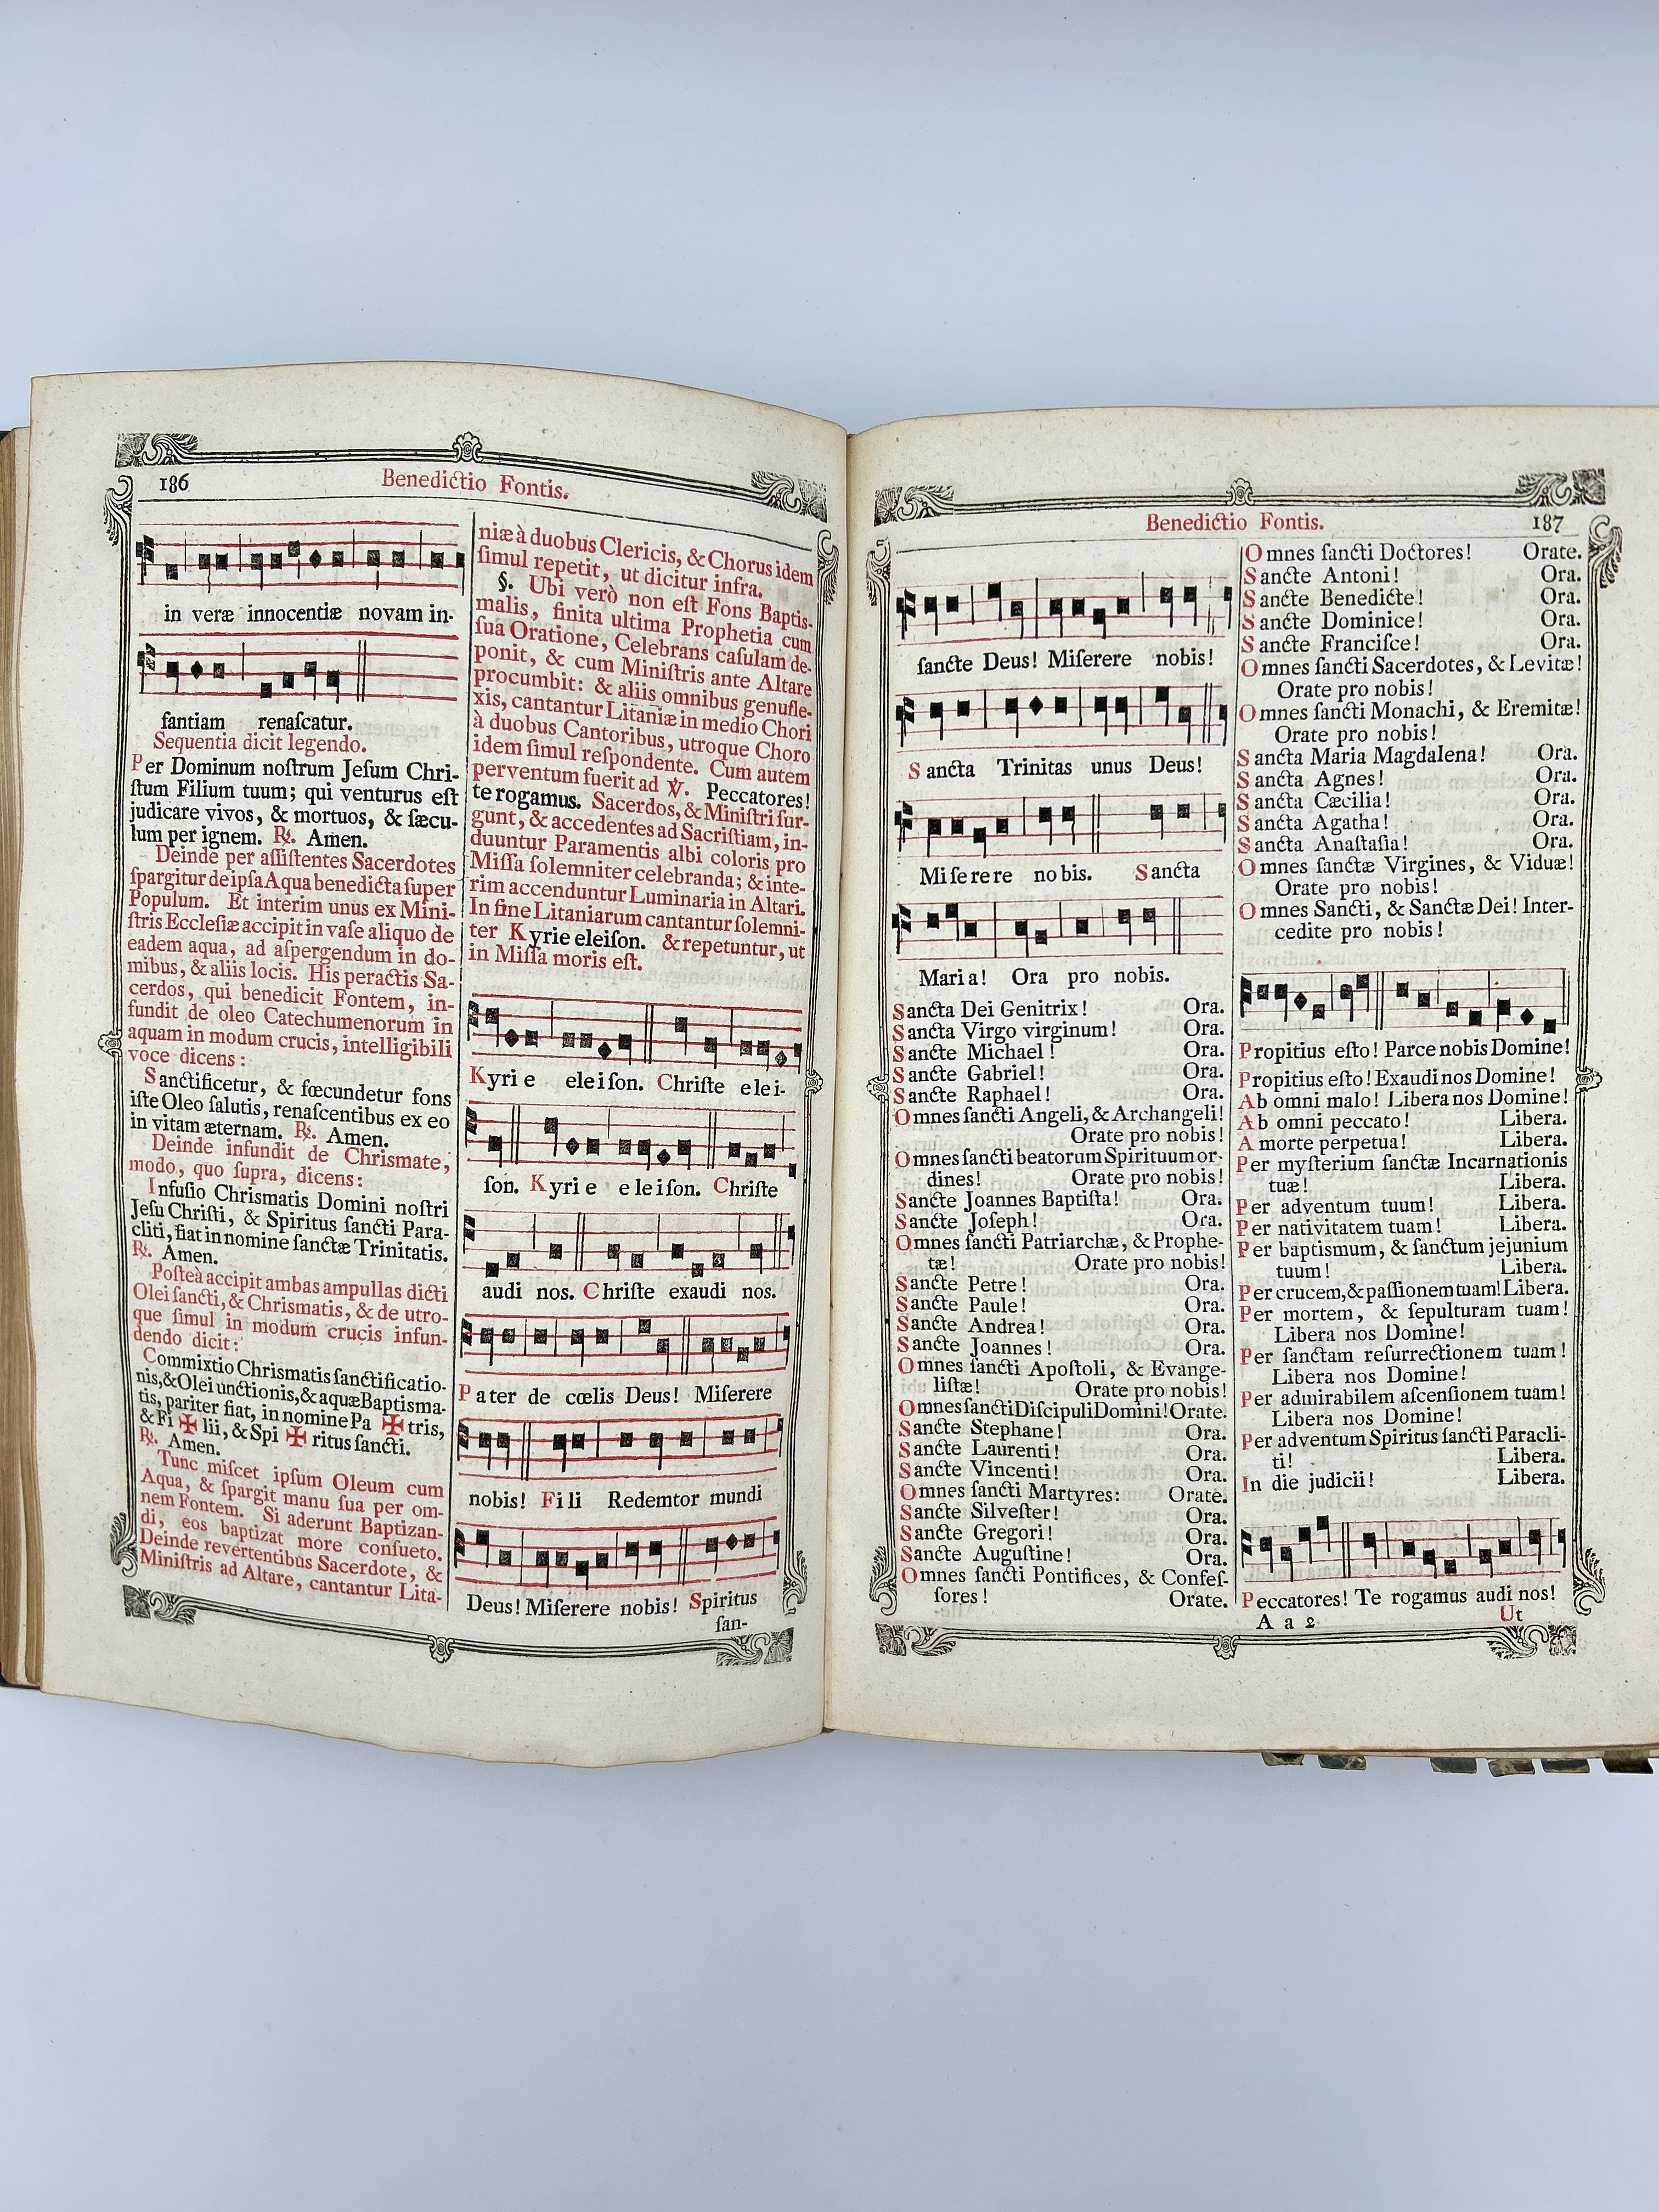 186
Benedictio Fontis.
in veræ innocentiæ novam in-
fantiam renaſcatur.
Sequentia dicit legendo.
Per Dominum noſtrum Jeſum Chri-
ſtum Filium tuum; qui venturus eſt
judicare vivos, & mortuos, & ſæcu-
lum per ignem. ℟. Amen.
Deinde per aſſiſtentes Sacerdotes
ſpargitur de ipſa Aqua benedicta ſuper
Populum. Et interim unus ex Mini-
ſtris Eccleſiæ accipit in vaſe aliquo de
eadem aqua, ad aſpergendum in do-
mibus, & aliis locis. His peractis Sa-
cerdos, qui benedicit Fontem, in-
fundit de oleo Catechumenorum in
aquam in modum crucis, intelligibili
voce dicens:
Sanctificetur, & fœcundetur fons
iſte Oleo ſalutis, renaſcentibus ex eo
in vitam æternam. ℟. Amen.
Deinde infundit de Chriſmate,
modo, quo ſupra, dicens:
Infuſio Chriſmatis Domini noſtri
Jeſu Chriſti, & Spiritus ſancti Para-
cliti, fiat in nomine ſanctæ Trinitatis.
℟. Amen.
Poſteà accipit ambas ampullas dicti
Olei ſancti, & Chriſmatis, & de utro-
que ſimul in modum crucis infun-
dendo dicit:
Commixtio Chriſmatis ſanctificatio-
nis, & Olei unctionis, & aquæ Baptiſma-
tis, pariter fiat, in nomine Pa ✠ tris,
& Fi ✠ lii, & Spi ✠ ritus ſancti.
℟. Amen.
Tunc miſcet ipſum Oleum cum
Aqua, & ſpargit manu ſua per om-
nem Fontem. Si aderunt Baptizan-
di, eos baptizat more conſueto.
Deinde revertentibus Sacerdote, &
Miniſtris ad Altare, cantantur Lita-
niæ à duobus Clericis, & Chorus idem
ſimul repetit, ut dicitur infra.
§. Ubi verò non eſt Fons Baptiſ-
malis, finita ultima Prophetia cum
ſua Oratione, Celebrans caſulam de-
ponit, & cum Miniſtris ante Altare
procumbit: & aliis omnibus genufle-
xis, cantantur Litaniæ in medio Chori
à duobus Cantoribus, utroque Choro
idem ſimul reſpondente. Cum autem
perventum fuerit ad ℣. Peccatores!
te rogamus. Sacerdos, & Miniſtri ſur-
gunt, & accedentes ad Sacriſtiam, in-
duuntur Paramentis albi coloris pro
Miſſa ſolemniter celebranda; & inte-
rim accenduntur Luminaria in Altari.
In fine Litaniarum cantantur ſolemni-
ter Kyrie eleiſon. & repetuntur, ut
in Miſſa moris eſt.
Kyri e eleiſon. Chriſte elei-
ſon. Kyri e eleiſon. Chriſte
audi nos. Chriſte exaudi nos.
Pater de cœlis Deus! Miſerere
nobis! Fili Redemtor mundi
Deus! Miſerere nobis! Spiritus
ſan-
Benedictio Fontis.
187
ſancte Deus! Miſerere nobis!
Sancta Trinitas unus Deus!
Miſerere nobis. Sancta
Maria! Ora pro nobis.
Sancta Dei Genitrix! Ora.
Sancta Virgo virginum! Ora.
Sancte Michael! Ora.
Sancte Gabriel! Ora.
Sancte Raphael! Ora.
Omnes ſancti Angeli, & Archangeli!
Orate pro nobis!
Omnes ſancti beatorum Spirituum or-
dines! Orate pro nobis!
Sancte Joannes Baptiſta! Ora.
Sancte Joſeph! Ora.
Omnes ſancti Patriarchæ, & Prophe-
tæ! Orate pro nobis!
Sancte Petre! Ora.
Sancte Paule! Ora.
Sancte Andrea! Ora.
Sancte Joannes! Ora.
Omnes ſancti Apoſtoli, & Evange-
liſtæ! Orate pro nobis!
Omnes ſancti Diſcipuli Domini! Orate.
Sancte Stephane! Ora.
Sancte Laurenti! Ora.
Sancte Vincenti! Ora.
Omnes ſancti Martyres: Orate.
Sancte Silveſter! Ora.
Sancte Gregori! Ora.
Sancte Auguſtine! Ora.
Omnes ſancti Pontifices, & Confeſ-
ſores! Orate.
Omnes ſancti Doctores! Orate.
Sancte Antoni! Ora.
Sancte Benedicte! Ora.
Sancte Dominice! Ora.
Sancte Franciſce! Ora.
Omnes ſancti Sacerdotes, & Levitæ!
Orate pro nobis!
Omnes ſancti Monachi, & Eremitæ!
Orate pro nobis!
Sancta Maria Magdalena! Ora.
Sancta Agnes! Ora.
Sancta Cæcilia! Ora.
Sancta Agatha! Ora.
Sancta Anaſtaſia! Ora.
Omnes ſanctæ Virgines, & Viduæ!
Orate pro nobis!
Omnes Sancti, & Sanctæ Dei! Inter-
cedite pro nobis!
Propitius eſto! Parce nobis Domine!
Propitius eſto! Exaudi nos Domine!
Ab omni malo! Libera nos Domine!
Ab omni peccato! Libera.
A morte perpetua! Libera.
Per myſterium ſanctæ Incarnationis
tuæ! Libera.
Per adventum tuum! Libera.
Per nativitatem tuam! Libera.
Per baptiſmum, & ſanctum jejunium
tuum! Libera.
Per crucem, & paſſionem tuam! Libera.
Per mortem, & ſepulturam tuam!
Libera nos Domine!
Per ſanctam reſurrectionem tuam!
Libera nos Domine!
Per admirabilem aſcenſionem tuam!
Libera nos Domine!
Per adventum Spiritus ſancti Paracli-
ti! Libera.
In die judicii! Libera.
Peccatores! Te rogamus audi nos!
A a 2 Ut